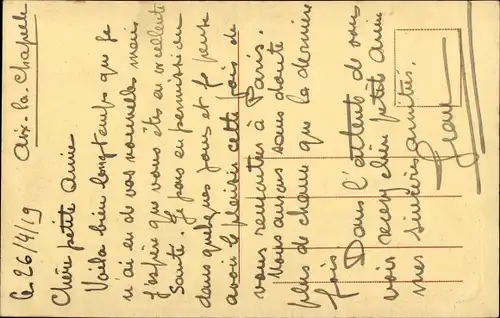 Aix-la-Chapelle
le 26/4/19
Chère petite amie
Voila bien longtemps que je
n'ai eu de vos nouvelles mais
j'espère que vous êtes en excellente
santé. Je pars en permission
dans quelques jours et je pense
avoir le plaisir cette fois de
vous rencontrer à Paris.
Nous aurons sans doute
plus de chance que la dernière
fois Dans l'attente de vous
voir recevez chère petite amie
mes sincères amitiés.
Jean